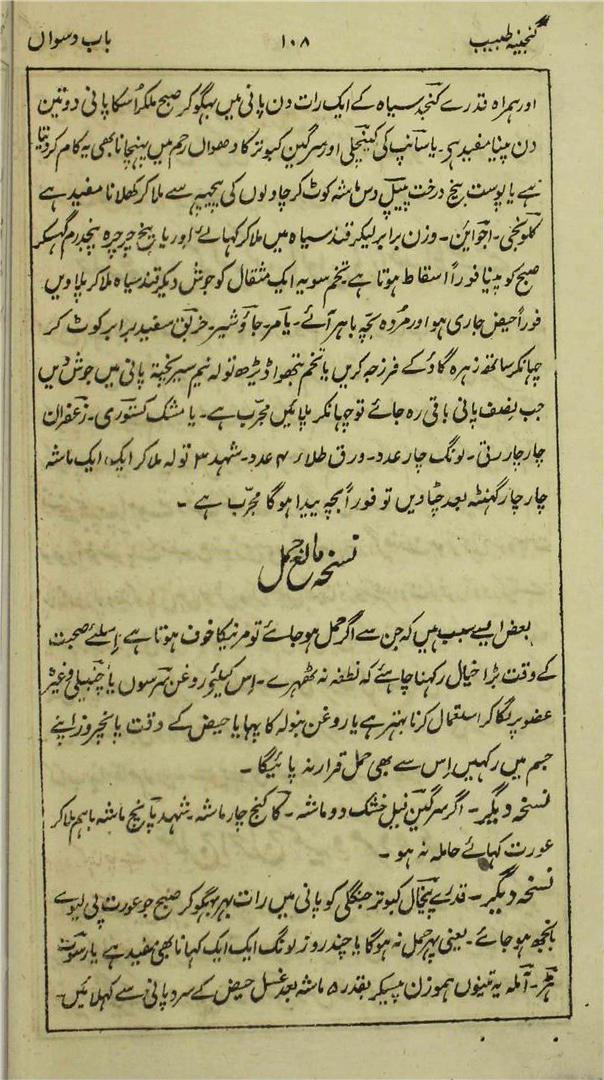 گنجینہ طبیب ۱۰۸ باب دسواں
اور ہمراہ قدرے کنجد سیاہ کے ایک رات دن پانی میں بہگو کر صبح ملکر اُسکا پانی دو تین
دن پینا مفید ہے۔ یا سانپ کی کینچلی اور سرگین کبوتر کا دھواں رحم میں پہنچانا بھی یہ کام کر دیتا
ہے یا پوست بیخ درخت پیپل دس ماشہ کوٹ کر چاولوں کی پیچہہ سے ملا کر کھلانا مفید ہے
کلونجی۔ اجوائن۔ وزن برابر لیکر قند سیاہ میں ملا کر کہالے اور یا بیخ چرچرہ پنجدرم گہسکر
صبح کو پینا فوراً اسقاط ہوتا ہے۔ تخم سویہ ایک مثقال کو جوش دیکر قند سیاہ ملا کر پلاویں
فوراً حیض جاری ہو اور مُردہ بچہ باہر آئے۔ یا مر۔ جاؤشیر۔ خربق سفید برابر کوٹ کر
چہانکر ساتھ زہرہ گاؤ کے فرزجہ کریں یا تخم بتھوا ڈیڑھ تولہ نیم سیر پختہ پانی میں جوش دیں
جب نصف پانی باقی رہ جائے تو چہانکر پلائیں مجرب ہے۔ یا مشک کستوری۔ زعفران
چار چار رتی۔ لونگ چار عدد۔ ورق طلاء ۴ عدد۔ شہد ۳ تولہ ملا کر ایک ایک ماشہ
چار چار گہنٹہ بعد چٹاویں تو فوراً بچہ پیدا ہوگا مجرّب ہے۔
نسخہ مانع حمل
بعض ایسے سبب ہیں کہ جن سے اگر حمل ہو جائے تو مرنیکا خوف ہوتا ہے اسلئے صحبت
کے وقت بڑا خیال رکھنا چاہئے کہ نطفہ نہ ٹھہرے۔ اِس کیلئے روغن سرسوں یا چنبیلی وغیرہ
عضو پر لگا کر استعمال کرنا بہتر ہے یا روغن بنولہ کا پہایا حیض کے وقت پانچروز اپنے
جسم میں رکہیں اِس سے بھی حمل قرار نہ پائیگا۔
نسخہ دیگر۔ اگر سرگین فیل خشک دو ماشہ۔ کاکنج چار ماشہ۔ شہد پانچ ماشہ باہم ملا کر
عورت کہائے حاملہ نہ ہو۔
نسخہ دیگر۔ قدرے پنچال کبوتر جنگلی کو پانی میں رات بہر بہگو کر صبح جو عورت پی لیوے
بانجھ ہو جائے۔ یعنی پہر حمل نہ ہوگا یا چند روز لونگ ایک ایک کہانا بھی مفید ہے یا رسوت
ہڑ۔ آملہ یہ تینوں ہموزن پیسکر بقدر ۵ ماشہ بعد غسل حیض کے سرد پانی سے کہلائیں۔